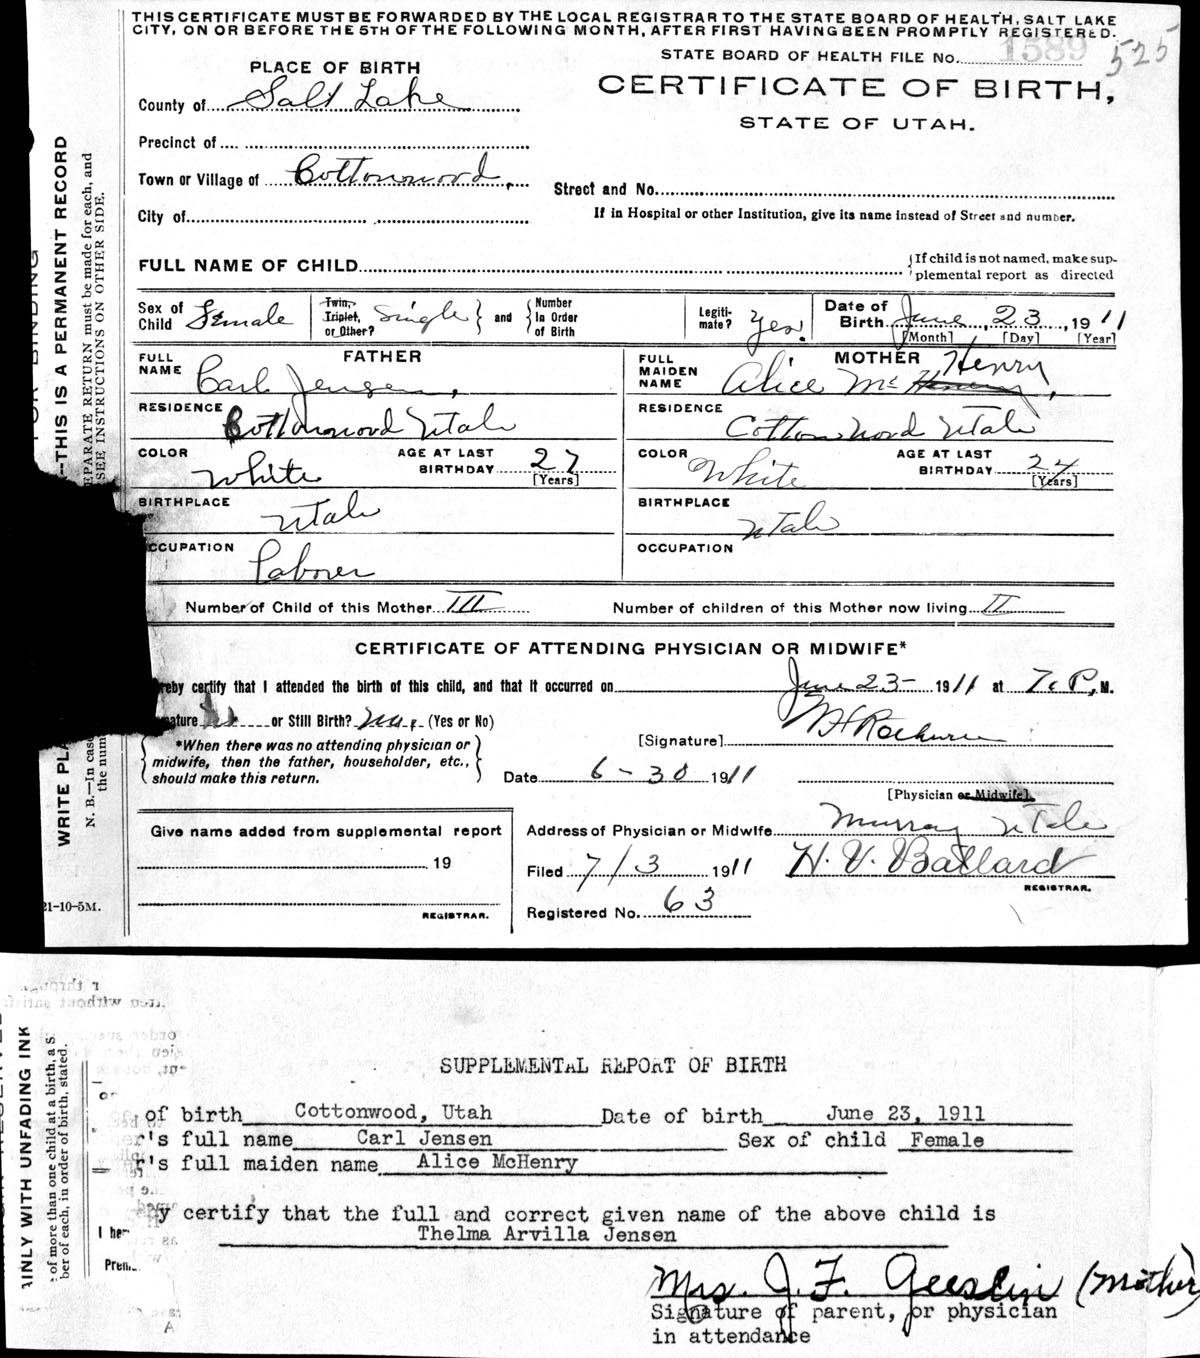 THIS CERTIFICATE MUST BE FORWARDED BY THE LOCAL REGISTRAR TO THE STATE BOARD OF HEALTH, SALT LAKE
CITY, ON OR BEFORE THE 5TH OF THE FOLLOWING MONTH, AFTER FIRST HAVING BEEN PROMPTLY REGISTERED.
STATE BOARD OF HEALTH FILE NO. 1589 525
PLACE OF BIRTH
CERTIFICATE OF BIRTH,
STATE OF UTAH.
County of Salt Lake
Precinct of
Town or Village of Cottonwood,
Street and No.
City of
If in Hospital or other Institution, give its name instead of Street and number.
FULL NAME OF CHILD
If child is not named, make sup-
plemental report as directed
Sex of Child Female
Twin, Triplet, or Other? Single and Number In Order of Birth
Legiti-mate? Yes.
Date of Birth June, 23, 1911
[Month] [Day] [Year]
FATHER
FULL NAME Carl Jensen,
MOTHER
FULL MAIDEN NAME Alice Mc Henry,
RESIDENCE Cottonwood Utah
RESIDENCE Cottonwood Utah
COLOR White AGE AT LAST BIRTHDAY 27 [Years]
COLOR White AGE AT LAST BIRTHDAY 24 [Years]
BIRTHPLACE Utah
BIRTHPLACE Utah
CCUPATION Laborer
OCCUPATION
Number of Child of this Mother III
Number of children of this Mother now living II
CERTIFICATE OF ATTENDING PHYSICIAN OR MIDWIFE*
reby certify that I attended the birth of this child, and that it occurred on June 23- 1911 at 7. P, M.
ature or Still Birth? (Yes or No)
[Signature]
*When there was no attending physician or
midwife, then the father, householder, etc.,
should make this return.
Date 6-30 1911
[Physician or Midwife].
Give name added from supplemental report
19
REGISTRAR.
Address of Physician or Midwife Murray Utah
Filed 7/3 1911 H. V. Ballard
REGISTRAR.
Registered No. 63
21-10-5M.
FOR BINDING
—THIS IS A PERMANENT RECORD
EPARATE RETURN must be made for each, and
SEE INSTRUCTIONS ON OTHER SIDE.
WRITE PLA
N. B.—In case
the num
SUPPLEMENTAL REPORT OF BIRTH
of birth Cottonwood, Utah Date of birth June 23, 1911
r's full name Carl Jensen Sex of child Female
r's full maiden name Alice McHenry
y certify that the full and correct given name of the above child is
Thelma Arvilla Jensen
Mrs. J. F. Geeslin (Mother)
Signature of parent, or physician
in attendance
AINLY WITH UNFADING INK
of more than one child at a birth, a S
ber of each, in order of birth, stated.
I her